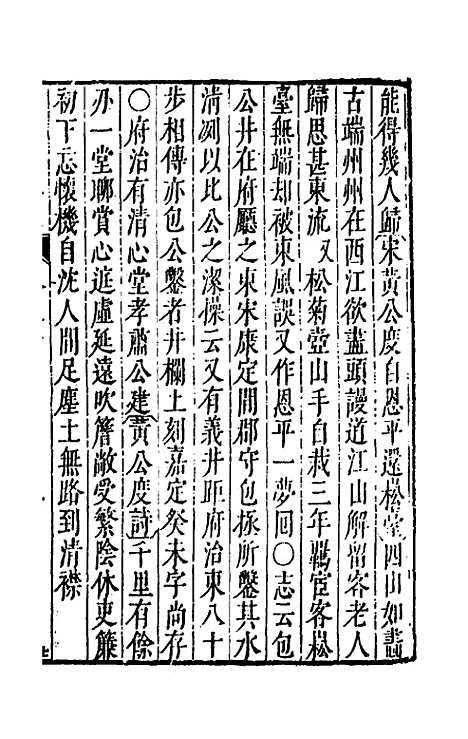 能得幾人歸宋黃公度自恩平還崧臺四山如畫
古端州州在西江欲盡頭謾道江山解留客老人
歸思甚東流又松菊壺山手自栽三年羈宦客崧
臺無端却被東風誤又作恩平一夢回〇志云包
公井在府廳之東宋康定間郡守包拯所鑿其水
清冽以比公之潔操云又有義井距府治東八十
步相傳亦包公鑿者井欄上刻嘉定癸未字尚存
〇府治有清心堂孝肅公建黃公度詩千里有餘
亦一堂聊賞心延虛延遠吹簷敞受繁陰休吏簾
初下忘懷機自沈人間足塵土無路到清襟